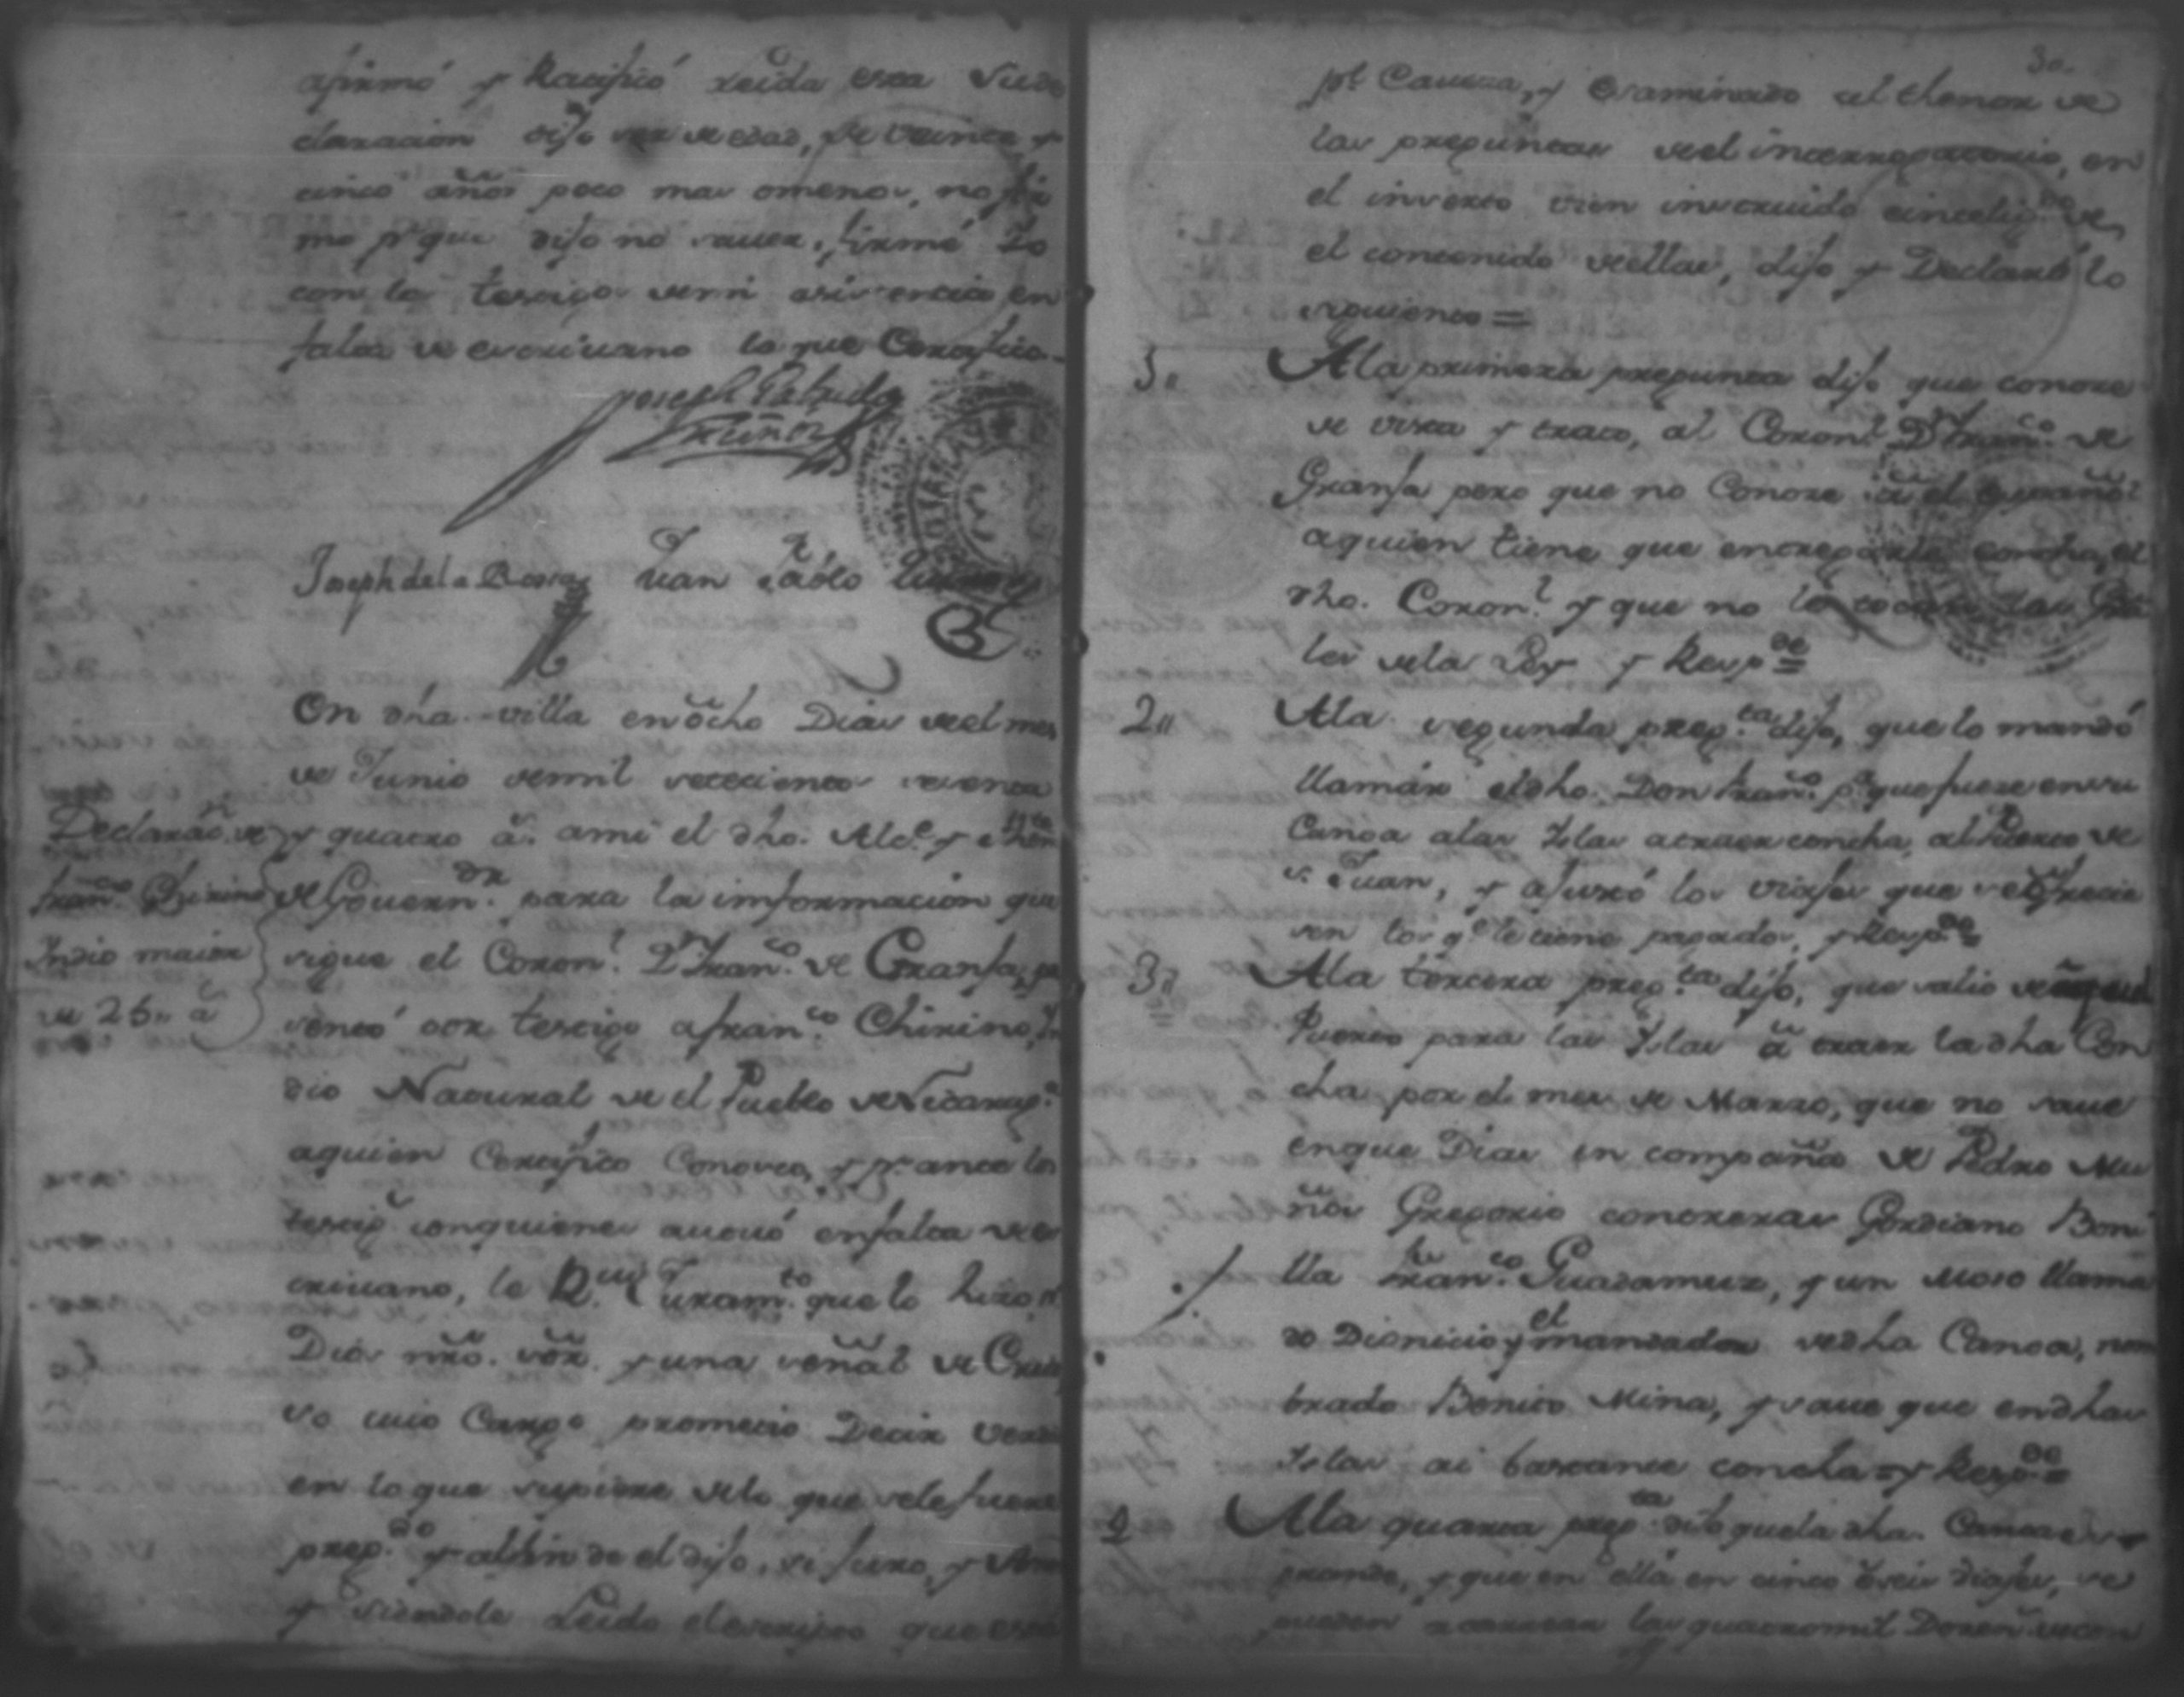 afirmó y Ratificó leida esta Su de
claracion dijo ser de edad, de veinte y
cinco años poco mas omenos, no fir
mo pr que dijo no saver, firmé Yo
con los testigos demi asistencia en
falta de escrivano lo que Certifico
Joseph
Muñoz
Joseph de la Rosa Juan Pablo
En dha. villa en ocho Dias de el mes
de Junio demil setecientos setenta
y quatro as. ami el dho. Alce. y
de Governor. para la informacion que
sigue el Coronl. Dn Franco. de Granja, pre
sentó por testigo a Franco. Chirino, Yn
dio Natural de el Pueblo de Nicarag.
aquien Certifico Conosco, y pr. ante los
testigs. conquienes actuó enfalta de es
crivano, le Rvi. Juramto. que lo hizo pr.
Dios nro. Sor. y una señal de Cruz
vo cuio Cargo prometio Decir verdad
en lo que supiere de lo que sele fuere
pregdo. y al fin de el dijo, si juro, y Amen
y siendole Leido el escripto que está
Declaraon. de
Franco. Chirino
Yndio maior
de 25" as
30.
pr. Caveza, y examinado al thenor de
las preguntas de el interrogatorio, en
el inserto vien instruido eintelig.do de
el contenido dellas, dijo y Declaró lo
siguiente =
1" A la primera pregunta dijo que conoce
de vista y trato, al Coronl. Dn Franco. de
Granja pero que no Conoce a el español
aquien tiene que entregarle concha, el
dho. Coronl. y que no le tocan las Gene
les de la Ley y Respde =
2" Ala segunda pregta. dijo, que lo mandó
llamar el dho. Don Franco. pa que fuese en su
Canoa alas Yslas atraer concha, al Puerto de
Sn. Juan, y ajustó los viajes que se ofrecie
sen los qe. le tiene pagados, y Respde
3" Ala tercera pregta. dijo, que salio de aquel
Puerto para las Yslas a traer la dha Con
cha por el mes de Marzo, que no save
enque Dias en compañia de Pedro Mu
ños Gregorio contreras Gordiano Boni
lla Franco. Guadamuz, y un Moso llama
do Dionicio y el mandador dedha Canoa, nom
brado Benito Mina, y save que endhas
Yslas ai bastante concha y Respde =
4 Ala quarta pregta. dijo quela dha. Canoa es
grande, y que en ella en cinco o seis viajes, se
pueden acarrear las quatromil Dosens. de con